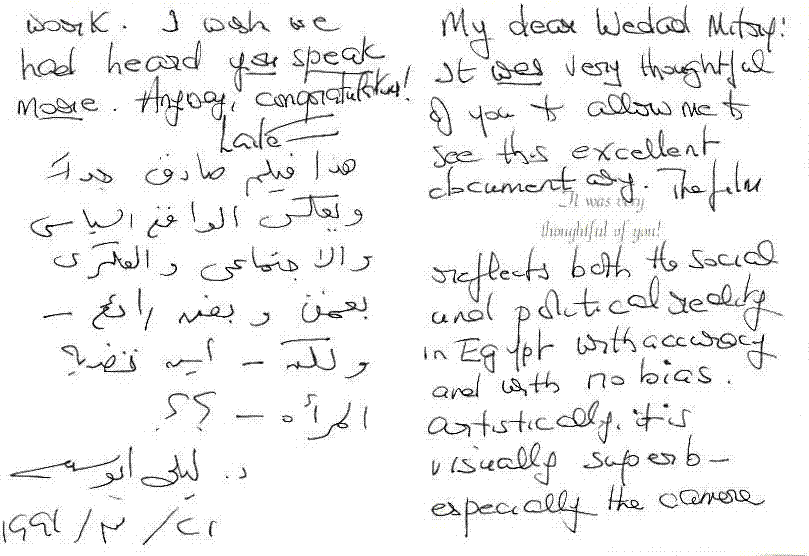 My dear Wedad Mitry:
It was very thoughtful
of you to allow me to
see this excellent
documentary. The film
It was very
thoughtful of you!
reflects both the social
and political reality
in Egypt with accuracy
and with no bias.
artistically, it is
visually superb –
especially the camera
work. I wish we
had heard you speak
more. Anyway, congratulations!
Laila
هذا فيلم صادق جداً
ويعكس الواقع السياسى
والاجتماعى والفكرى
بعمق وبفن رائع –
ولكن – أين قضية
المرأة – ؟؟
د. ليلى أبو سيف
٢١ / ٣ / ١٩٩١